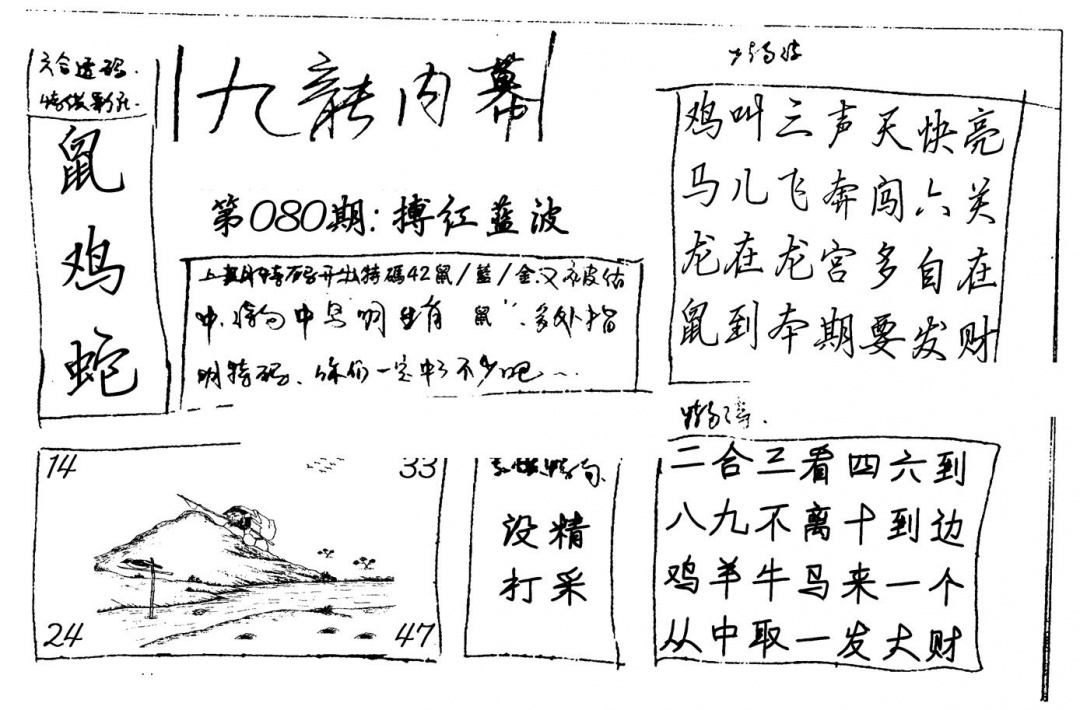 六合透码.
鼠
鸡
蛇
九龍内幕
第080期:搏红蓝波
上期特码开出特碼42鼠/藍/金.又被估
中.特句中 有鼠".多处指
明特码.你们一定中了不少吧...
鸡叫三声天快亮
马儿飞奔闯六关
龙在龙宫多自在
鼠到本期要发财
14 33
24 47
设精
打采
二合三看四六到
八九不离十到边
鸡羊牛马来一个
从中取一发大财